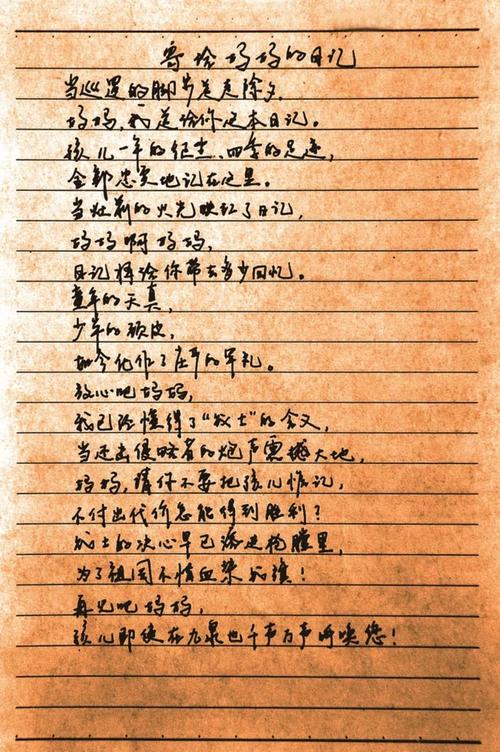 寄给妈妈的日记
当巡逻的脚步走走除夕,
妈妈,我送给你这本日记。
孩儿一年的纪念、四季的足迹,
全都忠实地记在这里。
当灶前的火光映红了日记,
妈妈啊妈妈,
日记将给你带去多少回忆。
童年的天真,
少年的顽皮,
如今化作了庄严的军礼。
放心吧妈妈,
我已经懂得了“战士”的含义,
当还击侵略者的炮声震撼大地,
妈妈,请你不要把孩儿惦记,
不付出代价怎能得到胜利?
战士的决心早已溶进枪膛里,
为了祖国不惜血染战旗!
再见吧妈妈,
孩儿即使在九泉也千声万声呼唤您!